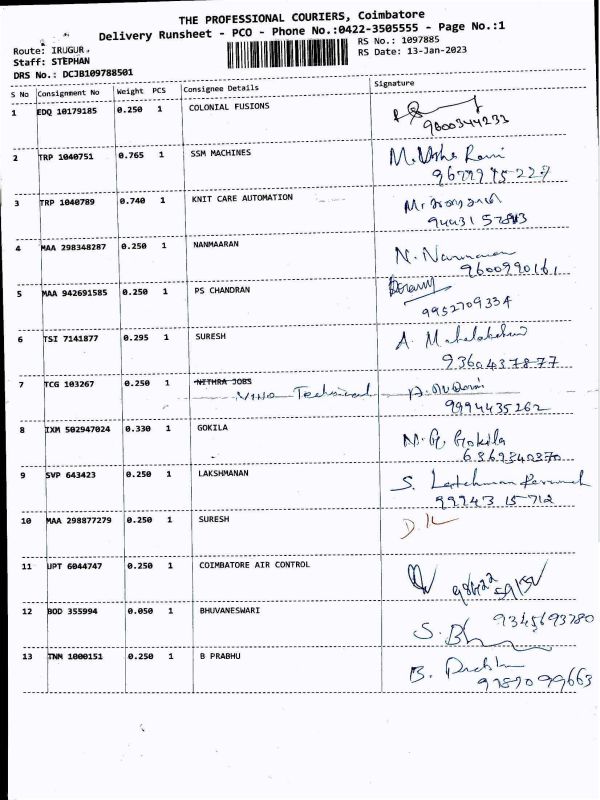 THE PROFESSIONAL COURIERS, Coimbatore
Delivery Runsheet - PCO - Phone No.:0422-3505555 - Page No.:1
Route: IRUGUR RS No.: 1097885
Staff: STEPHAN RS Date: 13-Jan-2023
DRS No.: DCJB109788501
S No Consignment No Weight PCS Consignee Details Signature
1 EDQ 10179185 0.250 1 COLONIAL FUSIONS
9600344233
2 TRP 1040751 0.765 1 SSM MACHINES M.
3 TRP 1040789 0.740 1 KNIT CARE AUTOMATION
4 MAA 298348287 0.250 1 NANMAARAN N. Nanmaran
9600990161
5 MAA 942691585 0.250 1 PS CHANDRAN
9952709334
6 TSI 7141877 0.295 1 SURESH A.
9360437877
7 TCG 103267 0.250 1 NITHRA JOBS
Technical
9994435262
8 IXM 502947024 0.330 1 GOKILA Gokila
6369340370
9 SVP 643423 0.250 1 LAKSHMANAN S.
99943 15712
10 MAA 298877279 0.250 1 SURESH
11 UPT 6044747 0.250 1 COIMBATORE AIR CONTROL
12 BOD 355994 0.050 1 BHUVANESWARI 9345693780
S.
13 TNM 1000151 0.250 1 B PRABHU B. Prabhu
9789099663